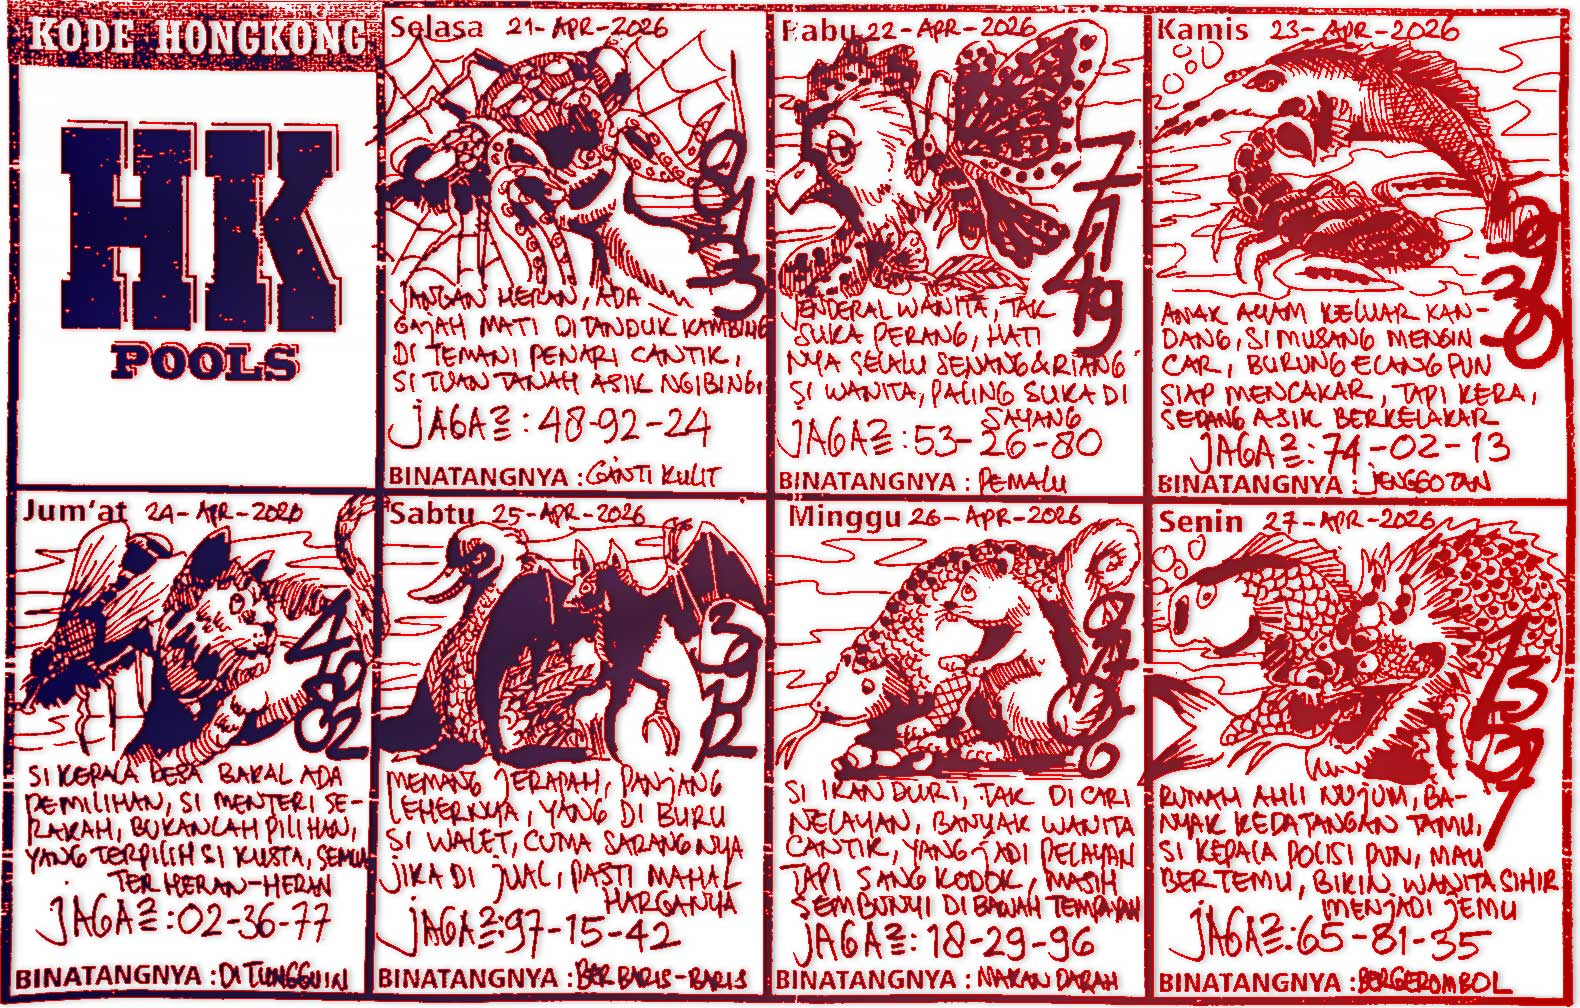 KODE HONGKONG
HK
POOLS
Selasa 21-APR-2026
JANGAN HERAN, ADA
GAJAH MATI DITANDUK KAMBING
DI TEMANI PENARI CANTIK,
SI TUAN TANAH ASIK NGIBING.
JAGA2: 48-92-24
BINATANGNYA : GANTI KULIT
Rabu 22-APR-2026
JENDERAL WANITA, TAK
SUKA PERANG, HATI
NYA SELALU SENANG & RIANG
SI WANITA, PALING SUKA DI
SAYANG
JAGA2: 53-26-80
BINATANGNYA : PEMALU
Kamis 23-APR-2026
ANAK AYAM KELUAR KAN-
DANG, SI MUSANG MENGIN
CAR, BURUNG ELANG PUN
SIAP MENCAKAR, TAPI KERA,
SEDANG ASIK BERKELAKAR
JAGA2: 74-02-13
BINATANGNYA : JENGGOTAN
Jum'at 24-APR-2026
SI KEPALA DESA BAKAL ADA
PEMILIHAN, SI MENTERI SE-
RAKAH, BUKANLAH PILIHAN,
YANG TERPILIH SI KUSTA, SEMUA
TERHERAN-HERAN
JAGA2: 02-36-77
BINATANGNYA : DI TUNGGUIN
Sabtu 25-APR-2026
MEMANG JERAPAH, PANJANG
LEHERNYA, YANG DI BURU
SI WALET, CUMA SARANGNYA
JIKA DI JUAL, PASTI MAHAL
HARGANYA
JAGA2: 97-15-42
BINATANGNYA : BERBARIS-BARIS
Minggu 26-APR-2026
SI IKAN DURI, TAK DI CARI
NELAYAN, BANYAK WANITA
CANTIK, YANG JADI PELAYAN
TAPI SANG KODOK, MASIH
SEMBUNYI DI BAWAH TEMPAYAN
JAGA2: 18-29-96
BINATANGNYA : MAKAN DARAH
Senin 27-APR-2026
RUMAH AHLI NUJUM, BA-
NYAK KEDATANGAN TAMU,
SI KEPALA POLISI PUN, MAU
BERTEMU, BIKIN WANITA SIHIR
MENJADI JEMU
JAGA2: 65-81-35
BINATANGNYA : BERGEROMBOL